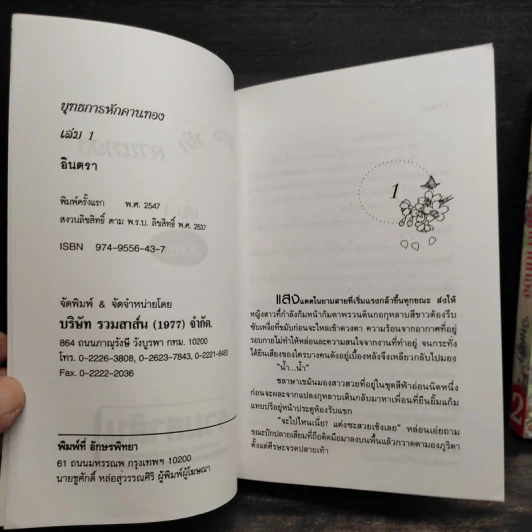 ยุทธการหักคานทอง
เล่ม 1
อินตรา
พิมพ์ครั้งแรก พ.ศ. 2547
สงวนลิขสิทธิ์ ตาม พ.ร.บ. ลิขสิทธิ์ พ.ศ. 2537
ISBN 974-9556-43-7
จัดพิมพ์ & จัดจำหน่ายโดย
บริษัท รวมสาส์น (1977) จำกัด.
864 ถนนภาณุรังษี วังบูรพา กทม. 10200
โทร. 0-2226-3808, 0-2623-7843, 0-2221-6483
Fax. 0-2222-2036
พิมพ์ที่ อักษรพิทยา
61 ถนนมหรรณพ กรุงเทพฯ 10200
นายชูศักดิ์ หล่อสุวรรณศิริ ผู้พิมพ์ผู้โฆษณา
1
แสงแดดในยามสายที่เริ่มแรงกล้าขึ้นทุกขณะ ส่งให้
หญิงสาวที่กำลังก้มหน้าก้มตาพรวนดินกอกุหลาบสีขาวต้องรีบ
ซับเหงื่อที่ขมับก่อนจะไหลเข้าดวงตา ความร้อนจากอากาศที่อยู่
รอบกายไม่ทำให้หล่อนละความสนใจจากงานที่ทำอยู่ จนกระทั่ง
ได้ยินเสียงของใครบางคนดังอยู่เบื้องหลังจึงเหลียวกลับไปมอง
"น้ำ...น้ำ"
ชลาษาเขม้นมองสาวสวยที่อยู่ในชุดสีฟ้าอ่อนนิดหนึ่ง
ก่อนจะผละจากแปลงกุหลาบเดินกลับมาหาเพื่อนที่ยืนยิ้มแก้ม
แทบปริอยู่หน้าประตูห้องรับแขก
"จะไปไหนเนี่ย? แต่งซะสวยเช้งเลย" หล่อนเอ่ยถาม
ขณะปักปลายเสียมที่ถือติดมือมาลงบนพื้นแล้วกวาดตามองภูริตา
ตั้งแต่ศีรษะจรดปลายเท้า